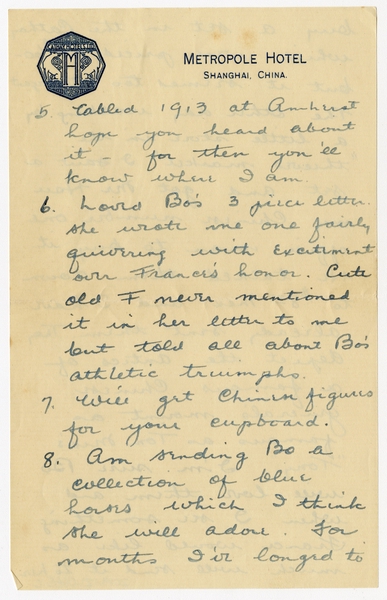 METROPOLE HOTEL
SHANGHAI, CHINA.
5. Cabled 1913 at Amherst
hope you heard about
it - for then you'll
know where I am.
6. Loved Bo's 3 piece letter.
She wrote me one fairly
quivering with excitement
over Frances's honor. Cute
old F never mentioned
it in her letter to me
but told all about Bo's
athletic triumphs.
7. Will get Chinese figures
for your cupboard.
8. Am sending Bo a
collection of blue
horses which I think
she will adore. For
months I've longed to